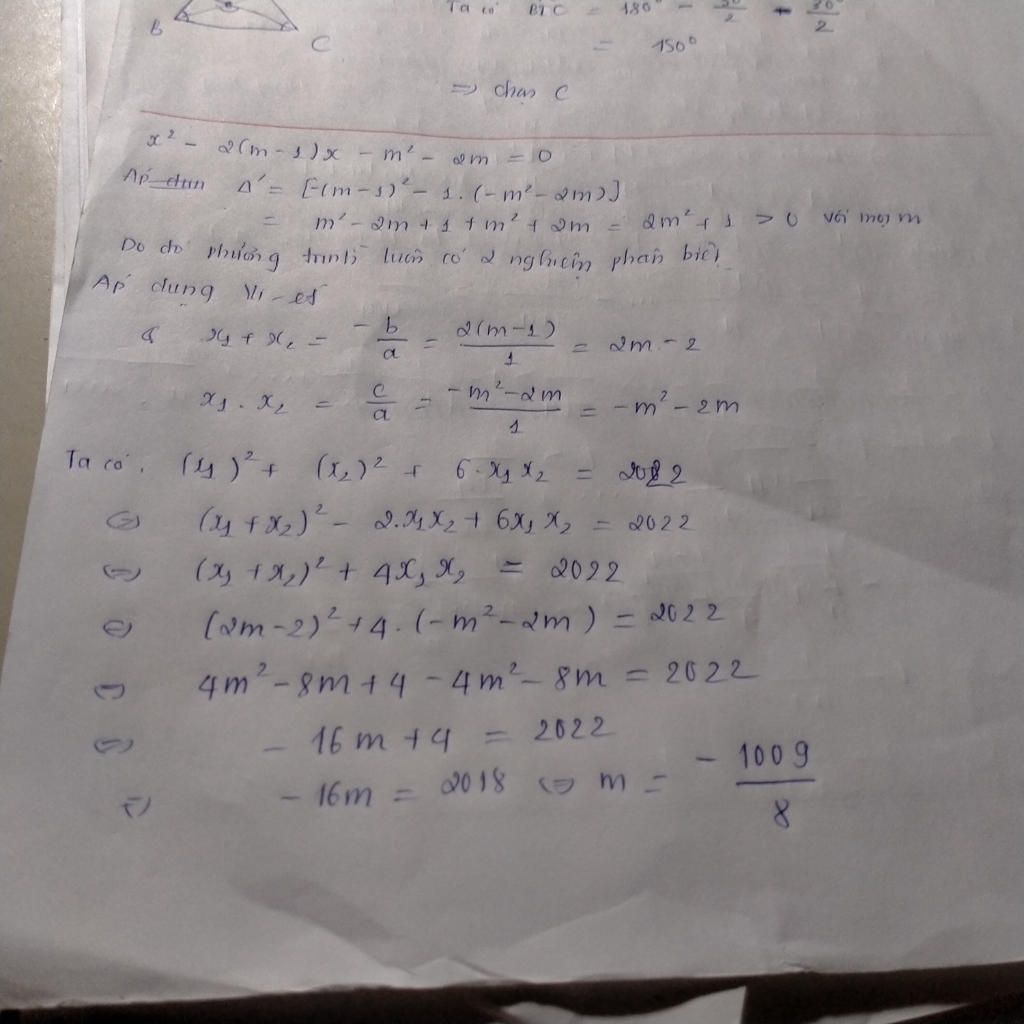 Ta có BIC = 180° - 30°/2 - 30°/2
B
C
= 150°
=> chọn C
x² - 2(m-1)x - m² - 2m = 0
Áp dụn Δ' = [-(m-1)² - 1.(-m² - 2m)]
= m² - 2m + 1 + m² + 2m = 2m² + 1 > 0 với mọi m
Do đó phương trình luôn có 2 nghiệm phân biệt
Áp dụng Vi-et
x₁ + x₂ = -b/a = 2(m-1)/1 = 2m - 2
x₁ . x₂ = c/a = -m²-2m/1 = -m² - 2m
Ta có. (x₁)² + (x₂)² + 6.x₁x₂ = 2022
<=> (x₁ + x₂)² - 2.x₁x₂ + 6x₁x₂ = 2022
<=> (x₁ + x₂)² + 4x₁x₂ = 2022
<=> (2m-2)² + 4.(-m² - 2m) = 2022
<=> 4m² - 8m + 4 - 4m² - 8m = 2022
<=> - 16m + 4 = 2022
<=> - 16m = 2018 <=> m = - 1009/8